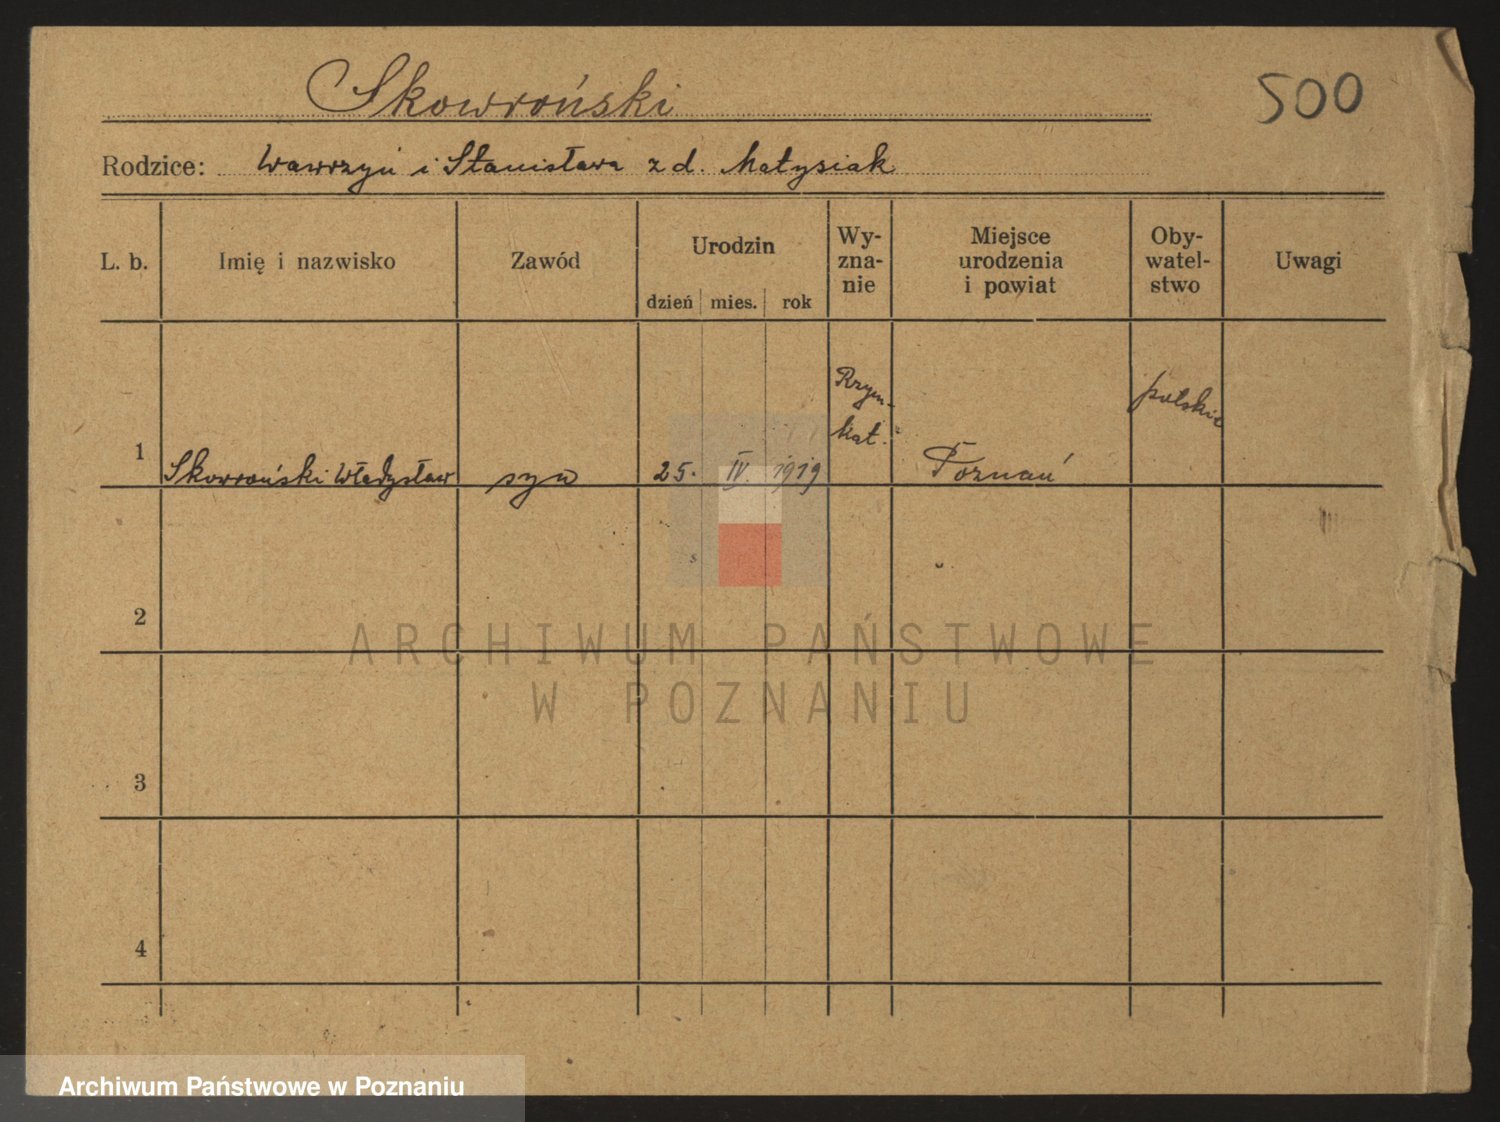 Skowroński
500
Rodzice: Wawrzyn i Stanisława z d. Matysiak
L. b.
Imię i nazwisko
Zawód
Urodzin
dzień mies. rok
Wy-
zna-
nie
Miejsce
urodzenia
i powiat
Oby-
watel-
stwo
Uwagi
1
Skowroński Władysław
syn
25. IV. 1919
Rzym.
kat.
Poznań
polskie
2
3
4
ARCHIWUM PAŃSTWOWE
W POZNANIU
Archiwum Państwowe w Poznaniu